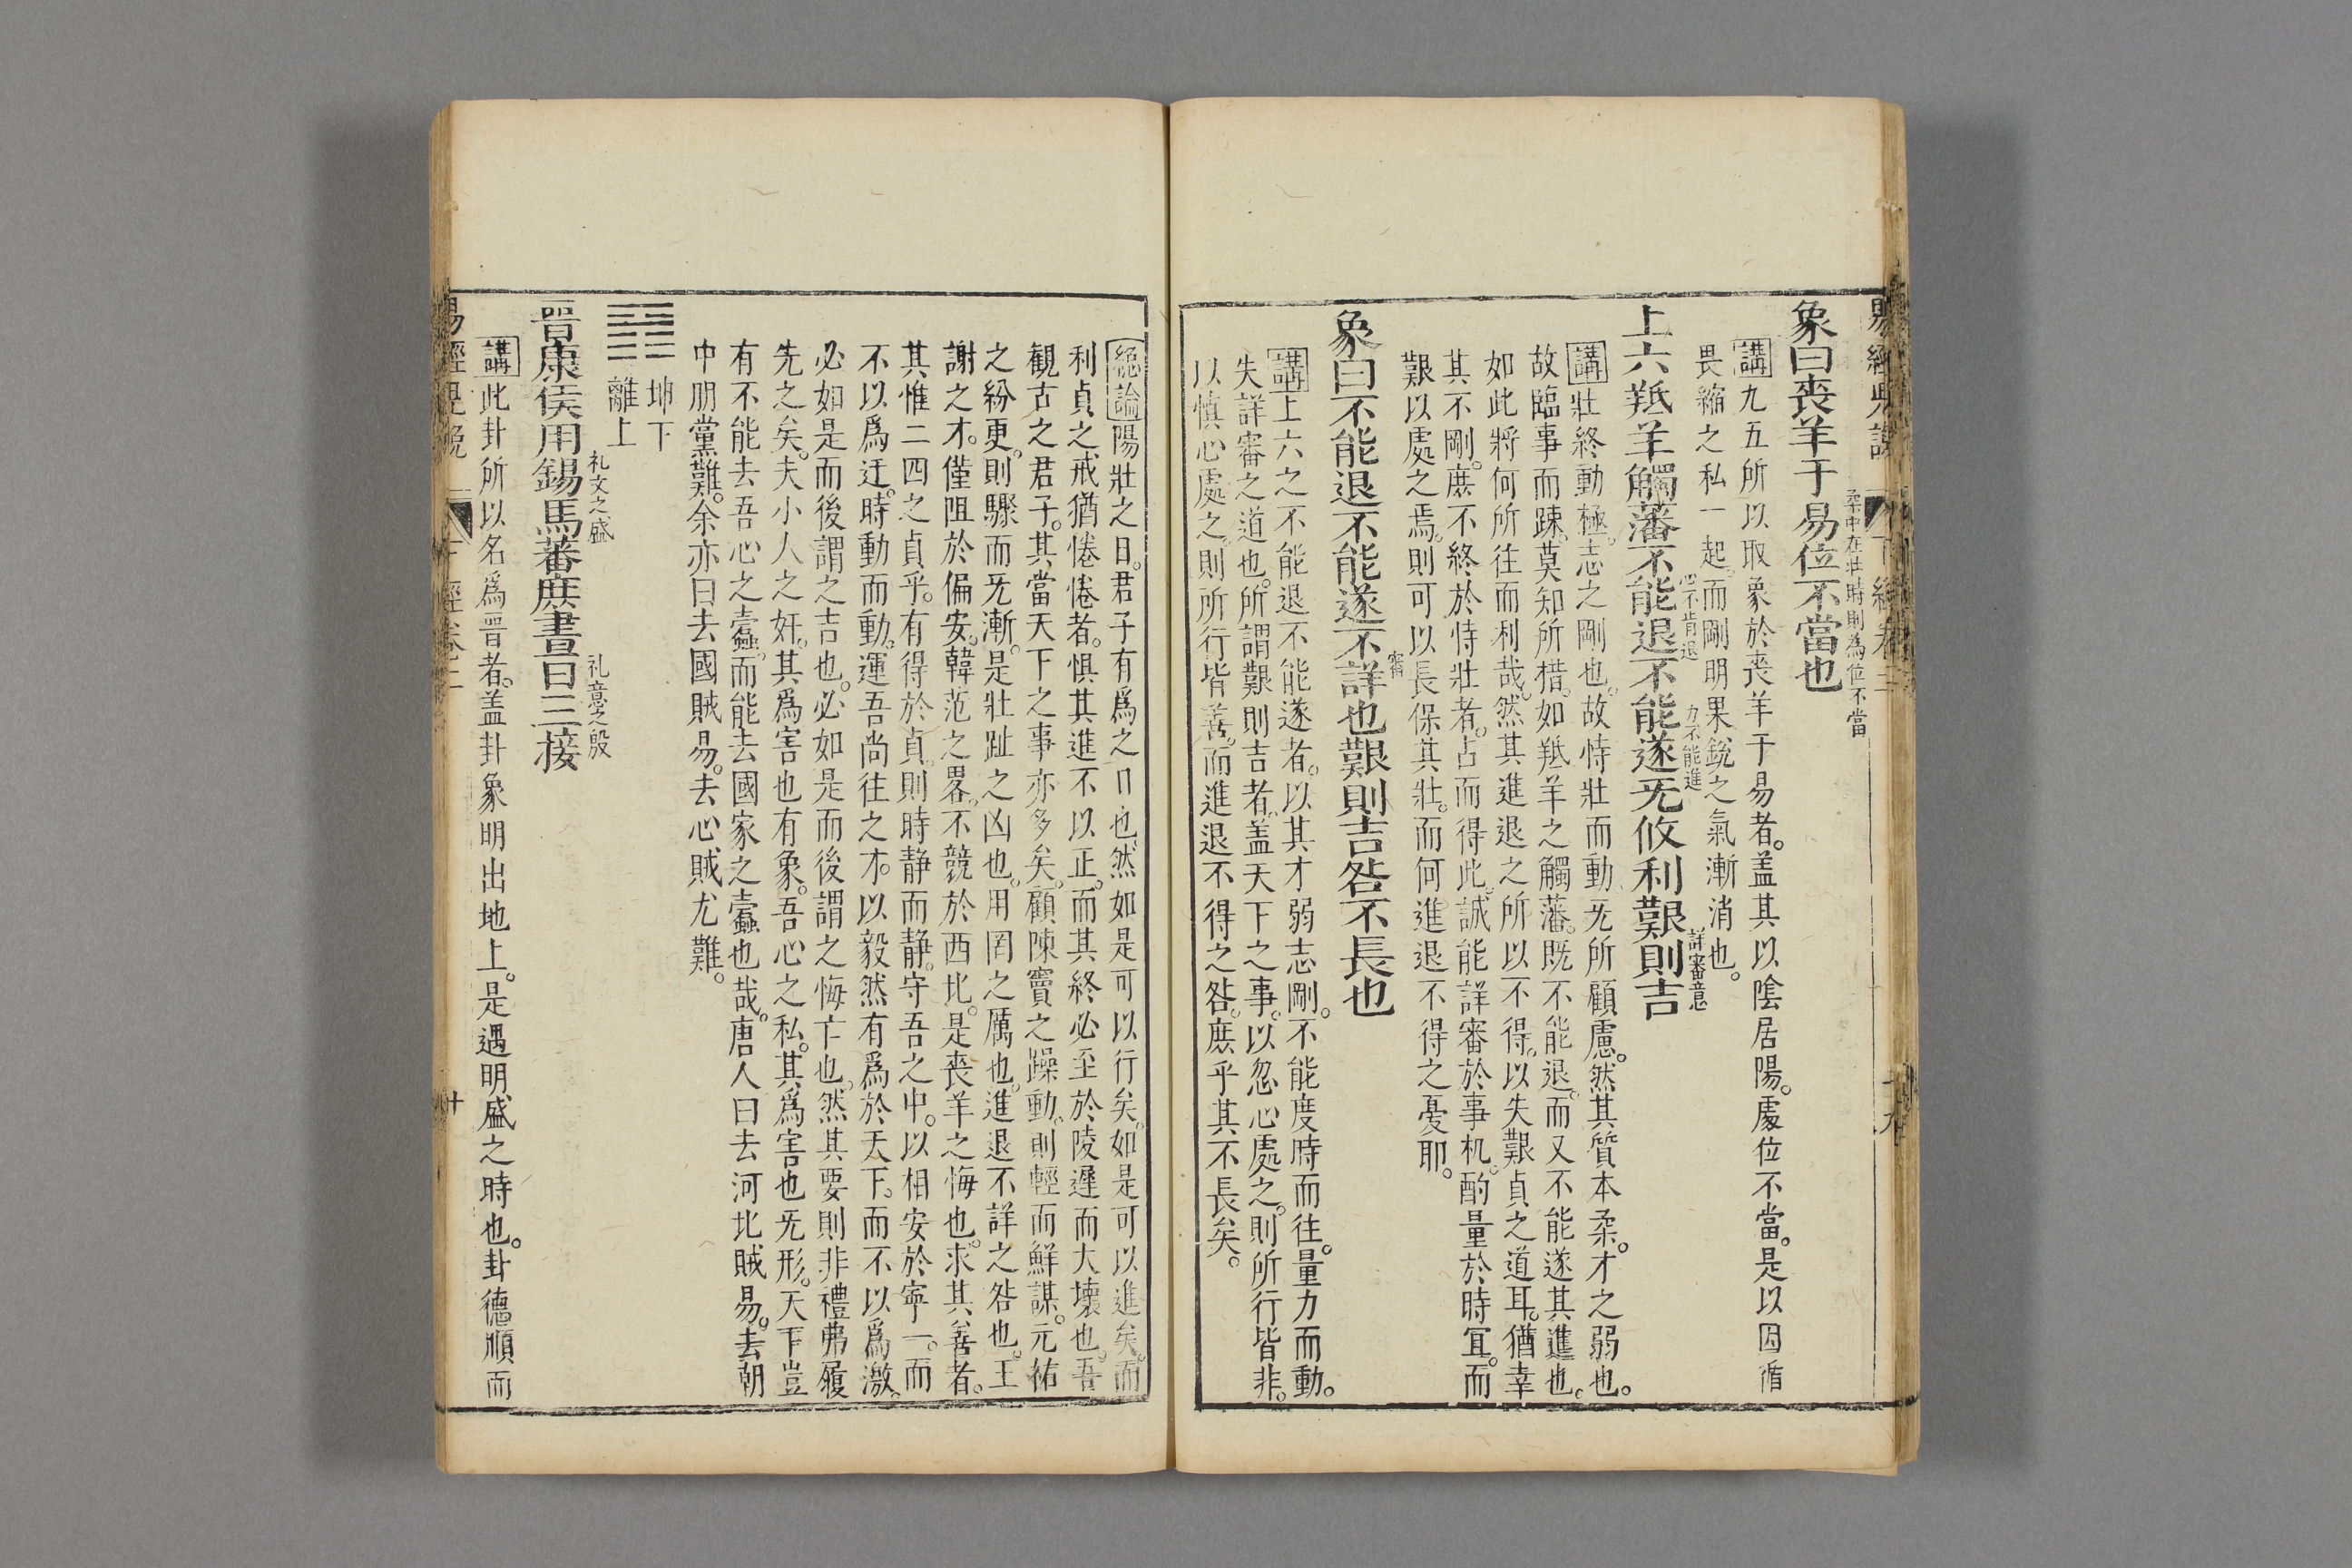 象曰喪羊于易位不當也
柔中在壯時則為位不當
講九五所以取象於喪羊于易者。蓋其以陰居陽。處位不當。是以因循
畏縮之私一起。而剛明果銳之氣漸消也。
上六羝羊觸藩不能退不能遂无攸利艱則吉
心不肯退
力不能進
詳審意
講壯終動極。志之剛也。故恃壯而動。无所顧慮。然其質本柔。才之弱也。
故臨事而踈。莫知所措。如羝羊之觸藩。既不能退。而又不能遂其進也。
如此將何所往而利哉。然其進退之所以不得。以失艱貞之道耳。猶幸
其不剛。庶不終於恃壯者。占而得此。誠能詳審於事机。酌量於時宜。而
艱以處之焉。則可以長保其壯。而何進退不得之憂耶。
象曰不能退不能遂不詳也艱則吉咎不長也
審
講上六之不能退不能遂者。以其才弱志剛。不能度時而往。量力而動。
失詳審之道也。所謂艱則吉者。蓋天下之事。以忽心處之。則所行皆非。
以慎心處之。則所行皆善。而進退不得之咎。庶乎其不長矣。
總論陽壯之日。君子有爲之日也。然如是可以行矣。如是可以進矣。而
利貞之戒猶惓惓者。惧其進不以正。而其終必至於陵遲而大壞也。吾
觀古之君子。其當天下之事亦多矣。顧陳竇之躁動。則輕而鮮謀。元祐
之紛更。則驟而旡漸。是壯趾之凶也。用罔之厲也。進退不詳之咎也。王
謝之才。僅阻於偏安。韓范之畧。不競於西北。是喪羊之悔也。求其善者。
其惟二四之貞乎。有得於貞。則時静而静。守吾之中。以相安於寧一。而
不以爲迂。時動而動。運吾尚往之才。以毅然有爲於天下。而不以爲激。
必如是而後謂之吉也。必如是而後謂之悔亡也。然其要則非禮弗履
先之矣。夫小人之奸。其爲害也有象。吾心之私。其爲害也旡形。天下豈
有不能去吾心之蠹。而能去國家之蠹也哉。唐人曰去河北賊易。去朝
中朋黨難。余亦曰去國賊易。去心賊尤難。
坤下
離上
晋康侯用錫馬蕃庶晝日三接
礼文之盛
礼意之殷
講此卦所以名爲晋者。蓋卦象明出地上。是遇明盛之時也。卦德順而